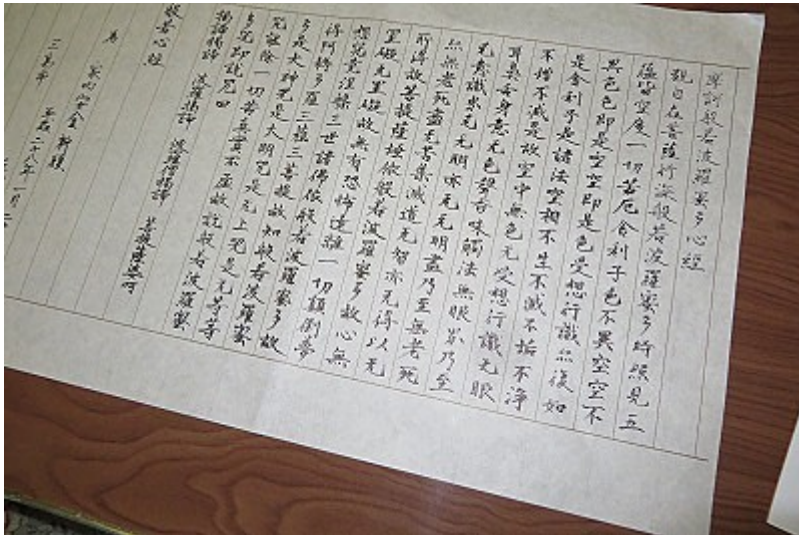 摩訶般若波羅蜜多心經
観自在菩薩行深般若波羅蜜多時照見五
蘊皆空度一切苦厄舎利子色不異空空不
異色色即是空空即是色受想行識亦復如
是舎利子是諸法空相不生不滅不垢不浄
不増不減是故空中無色无受想行識无眼
耳鼻舌身意无色聲香味觸法無眼界乃至
无意識界无无明亦无无明盡乃至無老死
亦無老死盡无苦集滅道无智亦无得以无
所得故菩提薩埵依般若波羅蜜多故心無
罣礙无罣礙故無有恐怖遠離一切顛倒夢
想究竟涅槃三世諸佛依般若波羅蜜多故
得阿耨多羅三藐三菩提故知般若波羅蜜
多是大神咒是大明咒是无上咒是无等等
咒能除一切苦真實不虚故説般若波羅蜜
多咒即説咒曰
揭諦揭諦 波羅揭諦 波羅僧揭諦 菩提薩婆訶
般若心經
為 家内安全 祈願
二十八年一月